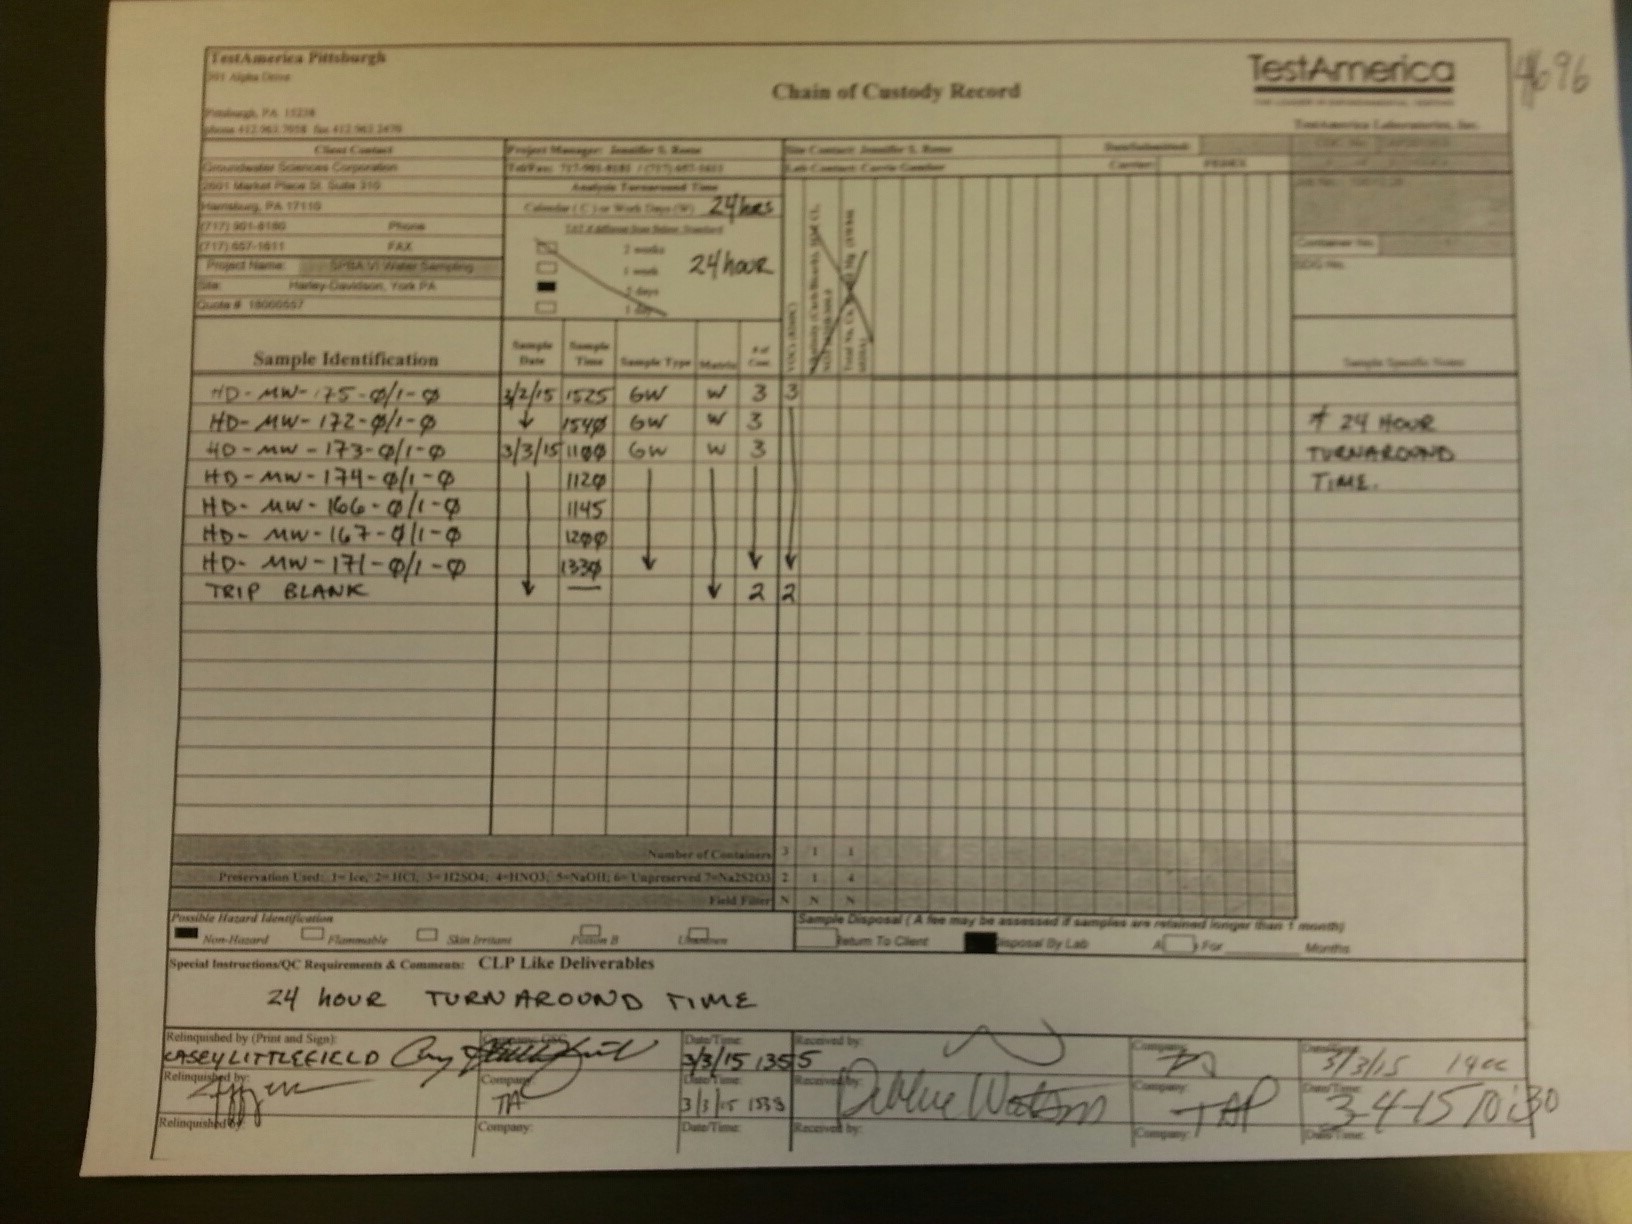 TestAmerica Pittsburgh
301 Alpha Drive
Pittsburgh, PA 15238
phone 412.963.7058 fax 412.963.2470
Chain of Custody Record
TestAmerica
THE LEADER IN ENVIRONMENTAL TESTING
TestAmerica Laboratories, Inc.
4696
Client Contact
Groundwater Sciences Corporation
2601 Market Place St. Suite 310
Harrisburg, PA 17110
(717) 901-8180 Phone
(717) 657-1611 FAX
Project Name: SPBA VI Water Sampling
Site: Harley-Davidson, York PA
Quote # 18000557
Project Manager: Jennifer S. Reese
Tel/Fax: 717-901-8181 / (717) 657-1611
Analysis Turnaround Time
Calendar ( C ) or Work Days (W) 24 hrs
TAT if different from Below Standard
2 weeks
1 week
2 days
1 day
24 hour
Site Contact: Jennifer S. Reese
Lab Contact: Carrie Gamber
Date Submitted:
Carrier: FEDEX
COC No:
Job No.
Container No.
SDG No.
Sample Identification
Sample Date
Sample Time
Sample Type
Matrix
# of Cont.
Sample Specific Notes:
HD-MW-175-Ø/1-Ø 3/2/15 1525 GW W 3 3
HD-MW-172-Ø/1-Ø ↓ 154Ø GW W 3
HD-MW-173-Ø/1-Ø 3/3/15 11ØØ GW W 3
HD-MW-174-Ø/1-Ø 112Ø
HD-MW-166-Ø/1-Ø 1145
HD-MW-167-Ø/1-Ø 12ØØ
HD-MW-171-Ø/1-Ø 133Ø
TRIP BLANK — 2 2
* 24 HOUR
TURNAROUND
TIME.
Number of Containers 3 1 1
Preservation Used: 1= Ice, 2= HCl; 3= H2SO4; 4=HNO3; 5=NaOH; 6= Unpreserved 7=Na2S2O3 2 1 4
Field Filter N N N
Possible Hazard Identification
Non-Hazard Flammable Skin Irritant Poison B Unknown
Sample Disposal ( A fee may be assessed if samples are retained longer than 1 month)
Return To Client Disposal By Lab For Months
Special Instructions/QC Requirements & Comments: CLP Like Deliverables
24 HOUR TURNAROUND TIME
Relinquished by (Print and Sign): Company: GSC Date/Time: Received by: Company: Date/Time:
CASEY LITTLEFIELD 3/3/15 1355 3/3/15
Relinquished by: Company: Date/Time: Received by: Company: Date/Time:
TA 3/3/15 Debbie Watson TAP 3-4-15 10:30
Relinquished by: Company: Date/Time: Received by: Company: Date/Time: